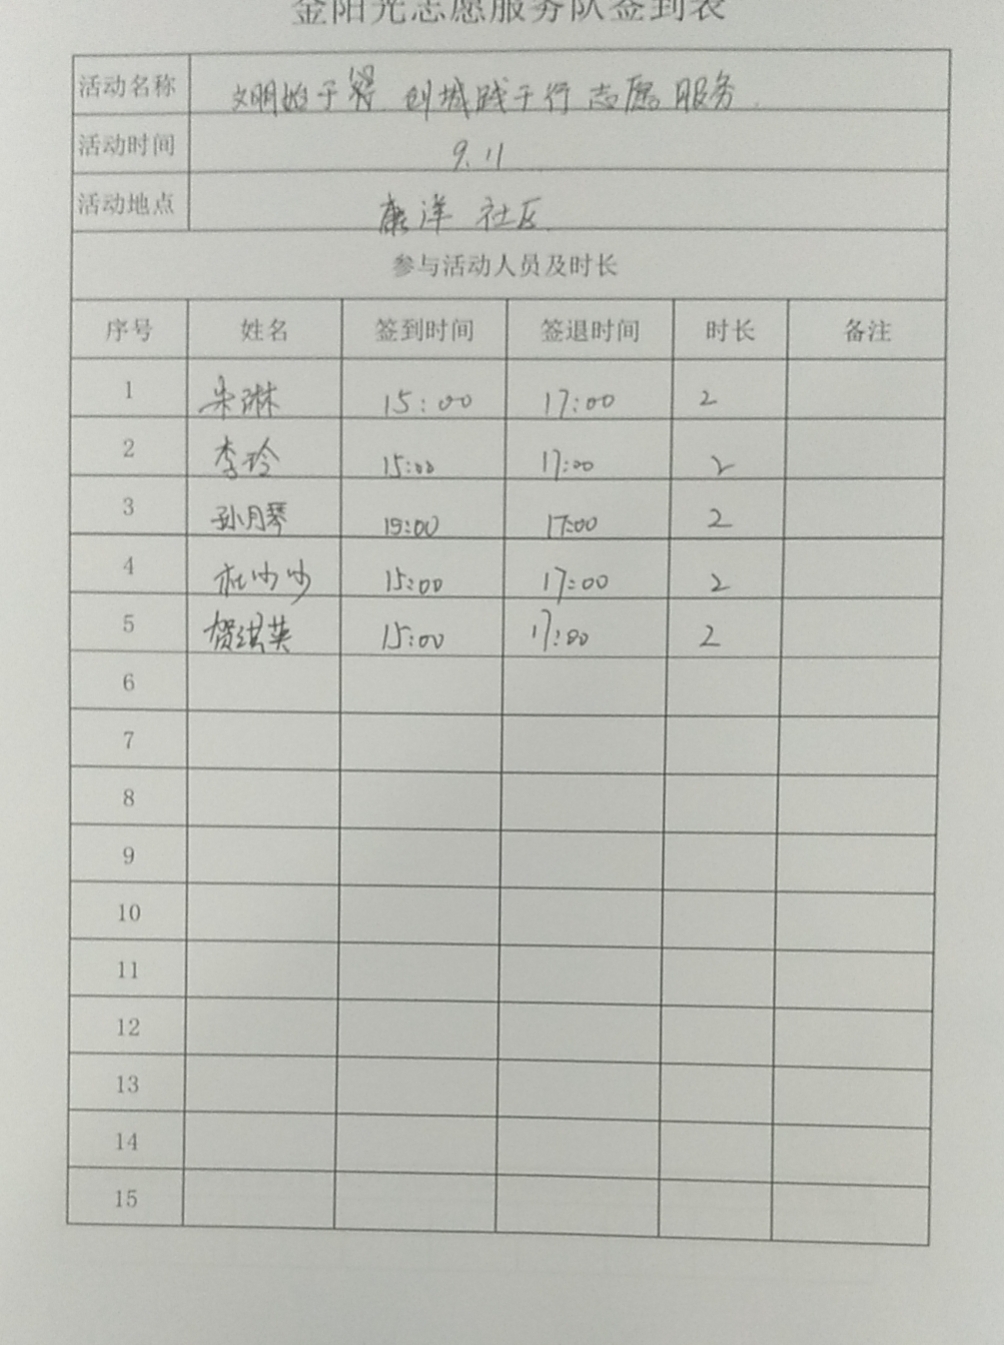 金阳光志愿服务队签到表
活动名称 文明始于心 创城践于行 志愿服务
活动时间 9.11
活动地点 康洋社区
参与活动人员及时长
序号 姓名 签到时间 签退时间 时长 备注
1 朱琳 15:00 17:00 2
2 李玲 15:00 17:00 2
3 孙月琴 15:00 17:00 2
4 杜沙沙 15:00 17:00 2
5 贺琪英 15:00 17:00 2
6
7
8
9
10
11
12
13
14
15